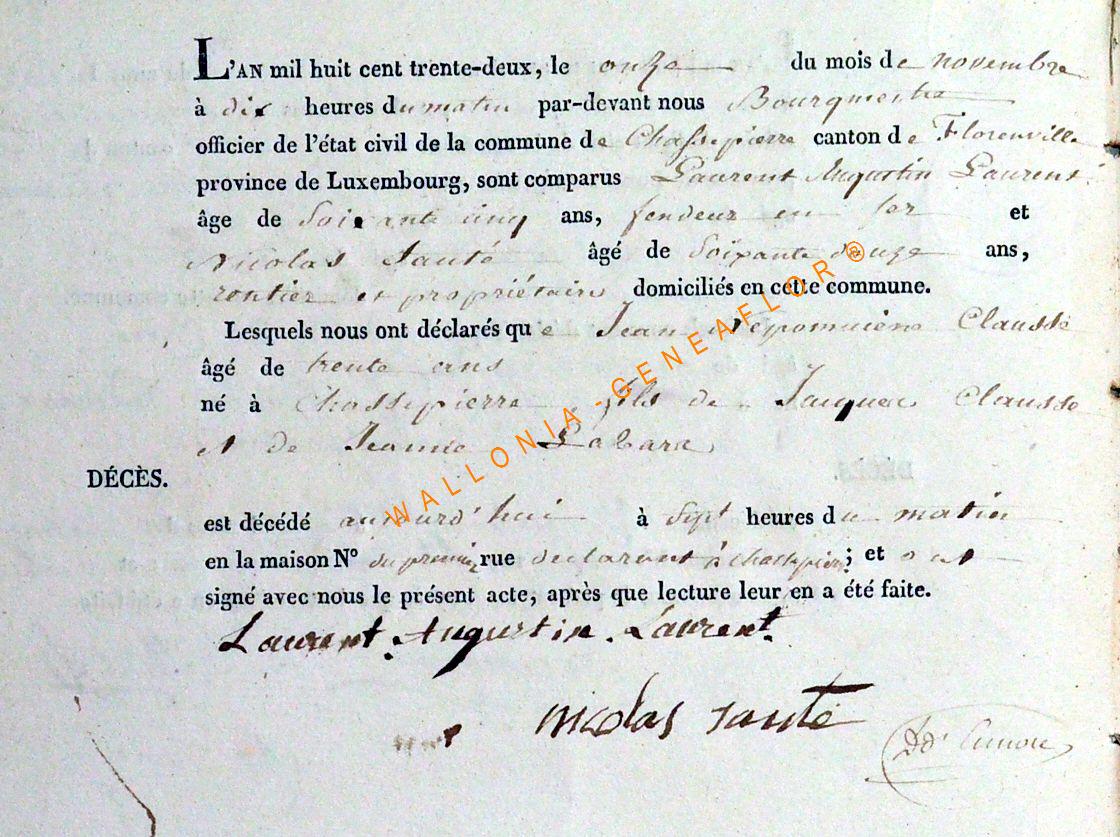 L'AN mil huit cent trente-deux, le onze du mois de novembre
à dix heures du matin par-devant nous Bourgmestre
officier de l'état civil de la commune de Chassepierre canton de Florenville
province de Luxembourg, sont comparus Laurent Augustin Laurent
âge de Soixante cinq ans, fendeur en fer et
Nicolas Santé âgé de Soixante douze ans,
rentier et propriétaire domiciliés en cette commune.
Lesquels nous ont déclarés que Jean Nepomucène Clausse
âgé de trente ans
né à Chassepierre, fils de Jacques Clausse
et de Jeanne
DÉCÈS.
est décédé aujourd'hui à Sept heures du matin
en la maison N° du premier rue declarant à Chassepierre; et ont
signé avec nous le présent acte, après que lecture leur en a été faite.
Laurent. Augustin. Laurent.
nicolas santé
WALLONIA-GENEAFLOR®